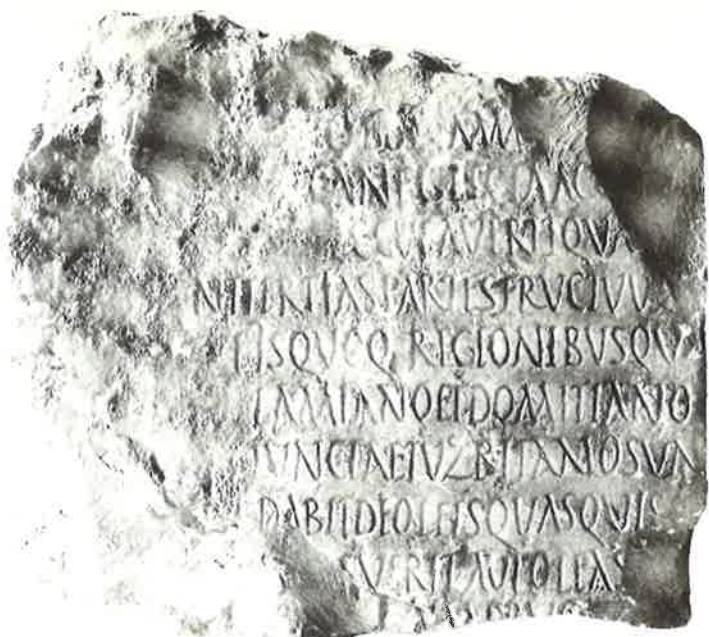 CCVPAVERITQVA
NTTERTIASPARTESFRVCTVV
EISQVOQ REGIONIBVSQV
LAMIANOETDOMITIANO
IVNCTAETVZRITANOSVN
DABITDEOLEISQVASQVIS
SVERITAVTOLEAS